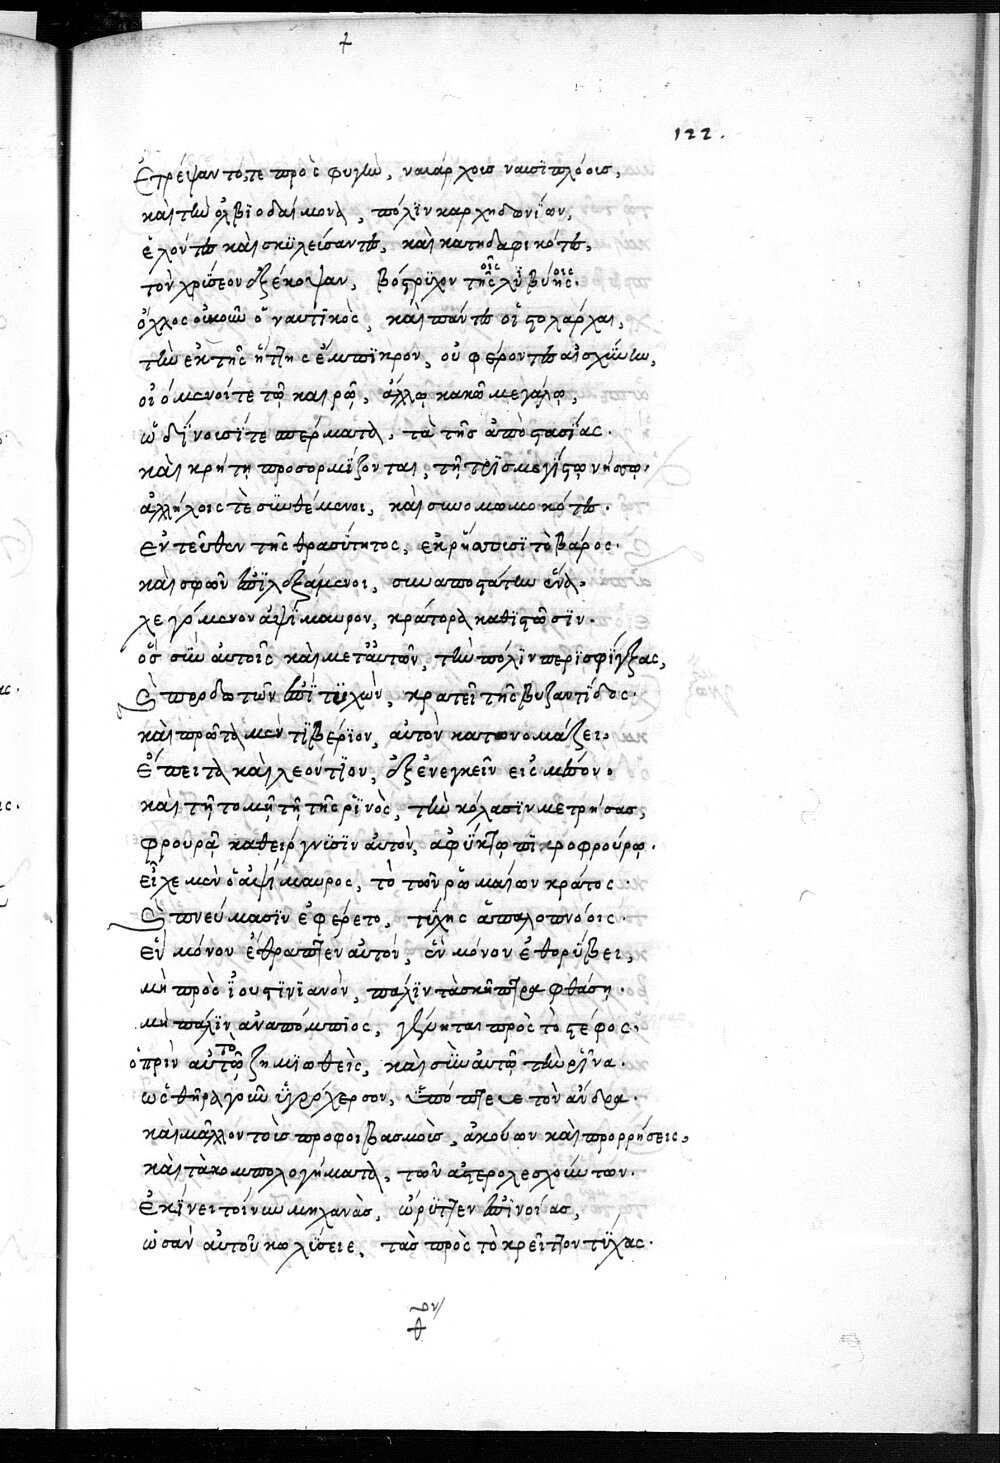 122.
ἐτρέψαντό, τε πρὸς φυγὴν, ναυάρχοις ναυσιπλόοις,
καὶ τὴν ὀλβιοδαίμονα, πόλιν καρχηδονίων,
ἑλόντες καὶ σκυλεύσαντες, καὶ κατηδαφικότες,
τὸν χρύσεον ἐξέκοψαν, βόστρυχον τῆς λιβύης.
ὄχλος οὐκοῦν ὁ ναυτικὸς, καὶ πάντες οἱ στολάρχαι,
τὴν ἐκ τῆς ἥττης ἔμπικρον, οὐ φέροντες αἰσχύνην,
οἰόμενοί τε τῷ καιρῷ, ἄλλῳ κακῷ μεγάλῳ,
ὠδίνουσί τε πέρματα, τὰ τῆς ἀποστασίας.
καὶ κρήτῃ προσορμίζονται, τῇ τρισμεγίστῳ νήσῳ,
ἀλλήλοις τὲ συνθέμενοι, καὶ συνομωμοκότες.
ἐντεῦθεν τῆς θρασύτητος, ἐκρήπισι τὸ βάρος.
καὶ σφῶν ἐπιλεξάμενοι, συναποστάτην ἕνα.
λεγόμενον ἀψίμαυρον, κράτορα καθιστῶσιν.
ὃς σὺν αὐτοῖς καὶ μετ' αὐτῶν, τὴν πόλιν περισφίγξας,
ἐκ προδοτῶν ἐπιτυχὼν, κρατεῖ τῆς βυζαντίδος.
καὶ πρῶτα μὲν τιβέριον, αὐτὸν κατονομάζει.
ἔπειτα καὶ λεόντιον, ἐξενεγκεῖν εἰς μέσον.
καὶ τῇ τομῇ τῇ τῆς ῥινὸς, τὴν κόλασιν μετρήσας,
φρουρᾷ καθείργνυσιν αὐτὸν, ἀφύκτῳ πικροφρούρῳ.
εἶχε μὲν ὁ ἀψίμαυρος, τὸ τῶν ῥωμαίων κράτος.
ἐν πνεύμασιν ἐφέρετο, τύχης ἁπαλοπνόοις.
ἓν μόνον ἐθραττεν αὐτόν, ἓν μόνον ἐθορύβει,
μὴ πρὸς ἰουστινιανὸν, πάλιν τὰ σκῆπτρα φθάσῃ.
μὴ πάλιν ἀναπόμπιος, γένηται πρὸς τὸ στέφος.
ὁ πρὶν αὐτῷ ζημιωθεὶς, καὶ σὺν αὐτῷ τὴν ῥῖνα.
ὡς θῆρα γοῦν ὑγρόχερσον, ὑπόπτευε τὸν ἄνδρα.
καὶ μᾶλλον τοῖς προφοιβασμοῖς, ἀκούων καὶ προρρήσεις,
καὶ τὰ κομπολογήματα, τῶν ἀστερολεσχούντων.
ἐκίνει τοίνυν μηχανὰς, ὤρυττεν ἐπινοίας,
ὡσὰν αὐτοῦ κωλύσειε, τὰς πρὸς τὸ κρεῖττον τύχας.